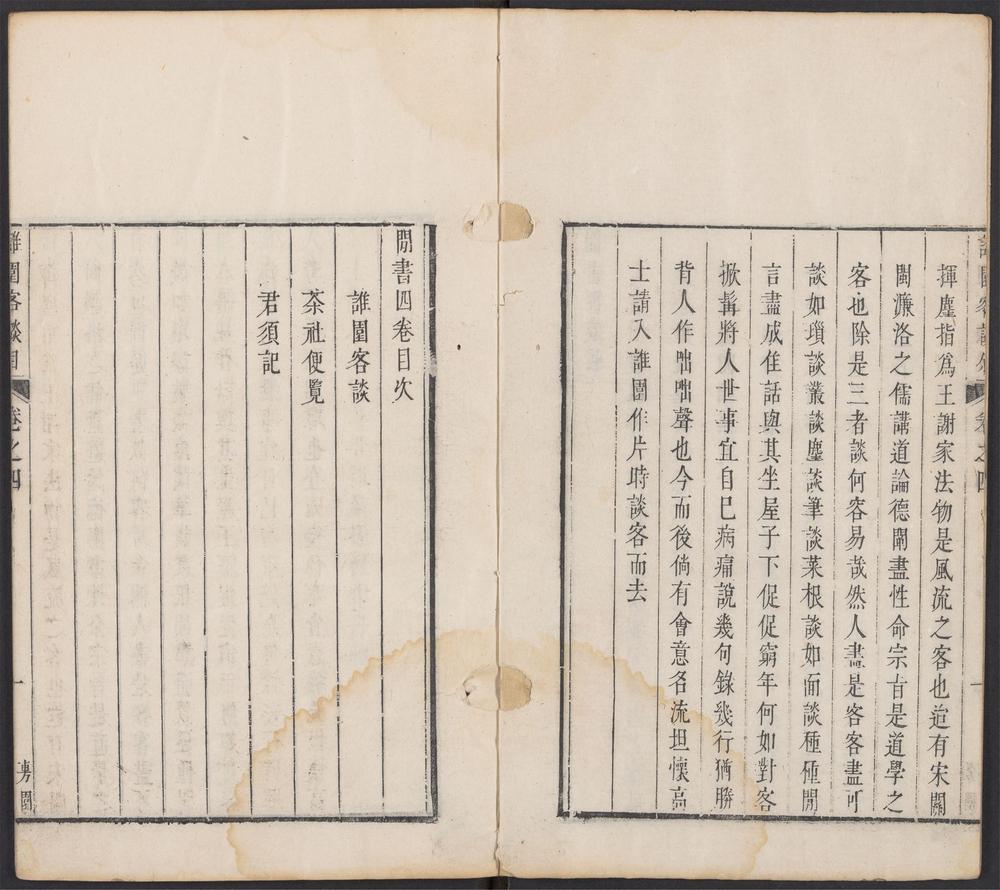 揮麈指爲王謝家法物是風流之客也迨有宋關
閩濂洛之儒講道論德闡盡性命宗旨是道學之
客也除是三者談何容易哉然人盡是客客盡可
談如瑣談叢談麈談筆談菜根談如面談種種閒
言盡成佳話與其坐屋子下促促窮年何如對客
掀髯將人世事宜自巳病痛說幾句錄幾行猶勝
背人作咄咄聲也今而後倘有會意名流坦懷高
士請入誰園作片時談客而去
卷之四
一
閒書四卷目次
誰園客談
茶社便覽
君須記
誰園客談目
卷之四
一